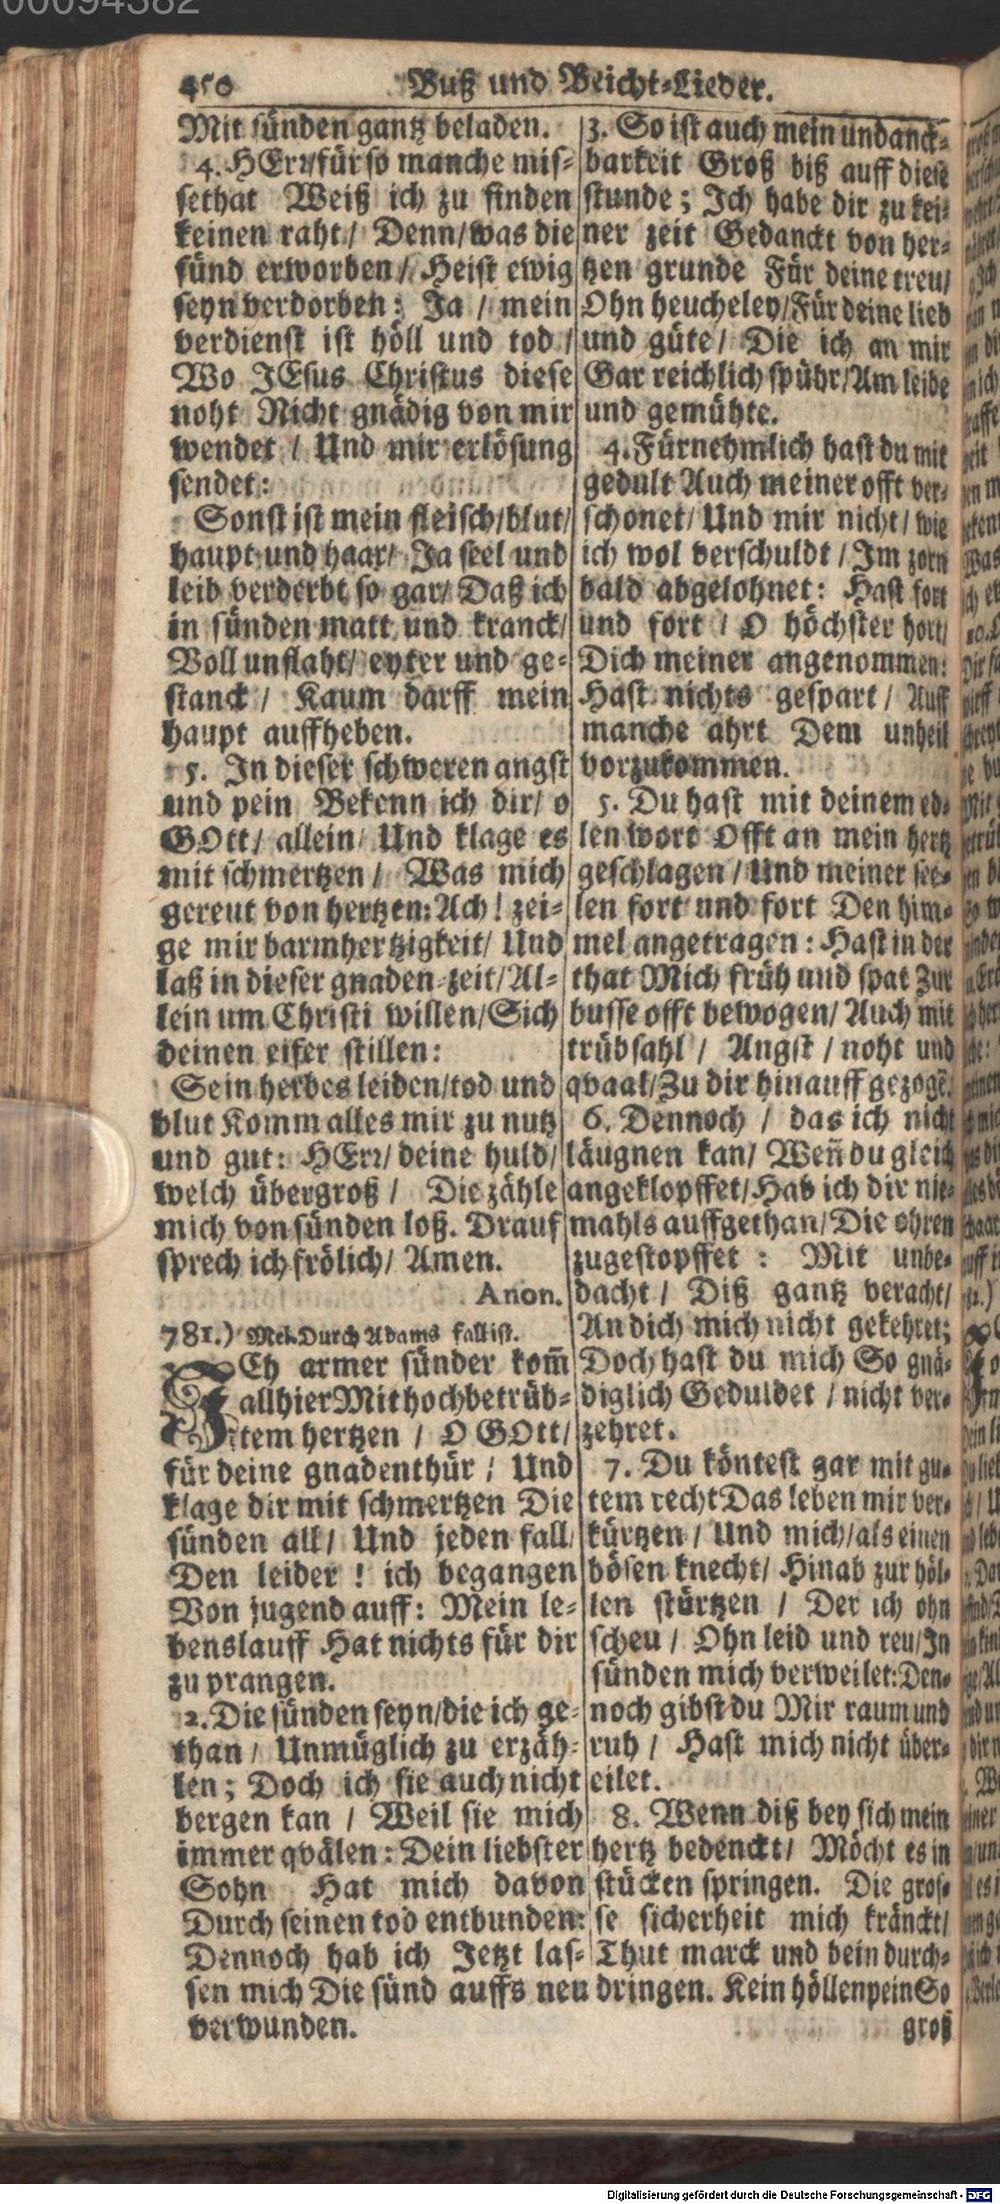 00094382
450 Buß und Beicht-Lieder.
Mit sünden gantz beladen.
4. HErr/ für so manche mis-
sethat Weiß ich zu finden
keinen raht/ Denn/ was die
sünd erworben/ Heist ewig
seyn verdorben: Ja / mein
verdienst ist höll und tod /
Wo JEsus Christus diese
noht Nicht gnädig von mir
wendet / Und mir erlösung
sendet:
Sonst ist mein fleisch/ blut/
haupt und haar/ Ja seel und
leib verderbt so gar/ Daß ich
in sünden matt und kranck/
Voll unflaht/ eyter und ge-
stanck / Kaum darff mein
haupt auffheben.
5. In dieser schweren angst
und pein Bekenn ich dir/ o
GOtt/ allein/ Und klage es
mit schmertzen / Was mich
gereut von hertzen: Ach! zei-
ge mir barmhertzigkeit/ Und
laß in dieser gnaden-zeit/ Al-
lein um Christi willen/ Sich
deinen eifer stillen:
Sein herbes leiden/ tod und
blut Komm alles mir zu nutz
und gut: HErr/ deine huld/
welch übergroß / Die zähle
mich von sünden loß. Drauf
sprech ich frölich/ Amen.
Anon.
781.) Mel. Durch Adams fall ist.
JCh armer sünder kom̄
allhier Mit hochbetrüb-
tem hertzen / O GOtt/
für deine gnadenthür / Und
klage dir mit schmertzen Die
sünden all/ Und jeden fall/
Den leider ! ich begangen
Von jugend auff: Mein le-
benslauff Hat nichts für dir
zu prangen.
2. Die sünden seyn/ die ich ge-
than/ Unmüglich zu erzäh-
len; Doch ich sie auch nicht
bergen kan / Weil sie mich
immer qvälen: Dein liebster
Sohn Hat mich davon
Durch seinen tod entbunden:
Dennoch hab ich Jetzt las-
sen mich Die sünd auffs neu
verwunden.
3. So ist auch mein undanck-
barkeit Groß biß auff diese
stunde; Ich habe dir zu kei-
ner zeit Gedanckt von her-
tzen grunde Für deine treu/
Ohn heucheley/ Für deine lieb
und güte/ Die ich an mir
Gar reichlich spühr/ Am leibe
und gemühte.
4. Fürnehmlich hast du mit
gedult Auch meiner offt ver-
schonet/ Und mir nicht/ wie
ich wol verschuldt / Im zorn
bald abgelohnet: Hast fort
und fort / O höchster hort/
Dich meiner angenommen:
Hast nichts gespart/ Auff
manche ahrt Dem unheil
vorzukommen.
5. Du hast mit deinem ed-
len wort Offt an mein hertz
geschlagen / Und meiner see-
len fort und fort Den him-
mel angetragen: Hast in der
that Mich früh und spat Zur
busse offt bewogen/ Auch mit
trübsahl / Angst / noht und
qvaal/ Zu dir hinauff gezogē.
6. Dennoch / das ich nicht
läugnen kan/ Wen̄ du gleich
angeklopffet/ Hab ich dir nie-
mahls auffgethan/ Die ohren
zugestopffet : Mit unbe-
dacht / Diß gantz veracht/
An dich mich nicht gekehret;
Doch hast du mich So gnä-
diglich Geduldet / nicht ver-
zehret.
7. Du köntest gar mit gu-
tem recht Das leben mir ver-
kürtzen / Und mich/ als einen
bösen knecht/ Hinab zur höl-
len stürtzen / Der ich ohn
scheu / Ohn leid und reu/ In
sünden mich verweilet: Den-
noch gibst du Mir raum und
ruh / Hast mich nicht über-
eilet.
8. Wenn diß bey sich mein
hertz bedenckt/ Möcht es in
stücken springen. Die gros-
se sicherheit mich kränckt/
Thut marck und bein durch-
dringen. Kein höllenpein So
groß
Digitalisierung gefördert durch die Deutsche Forschungsgemeinschaft - DFG